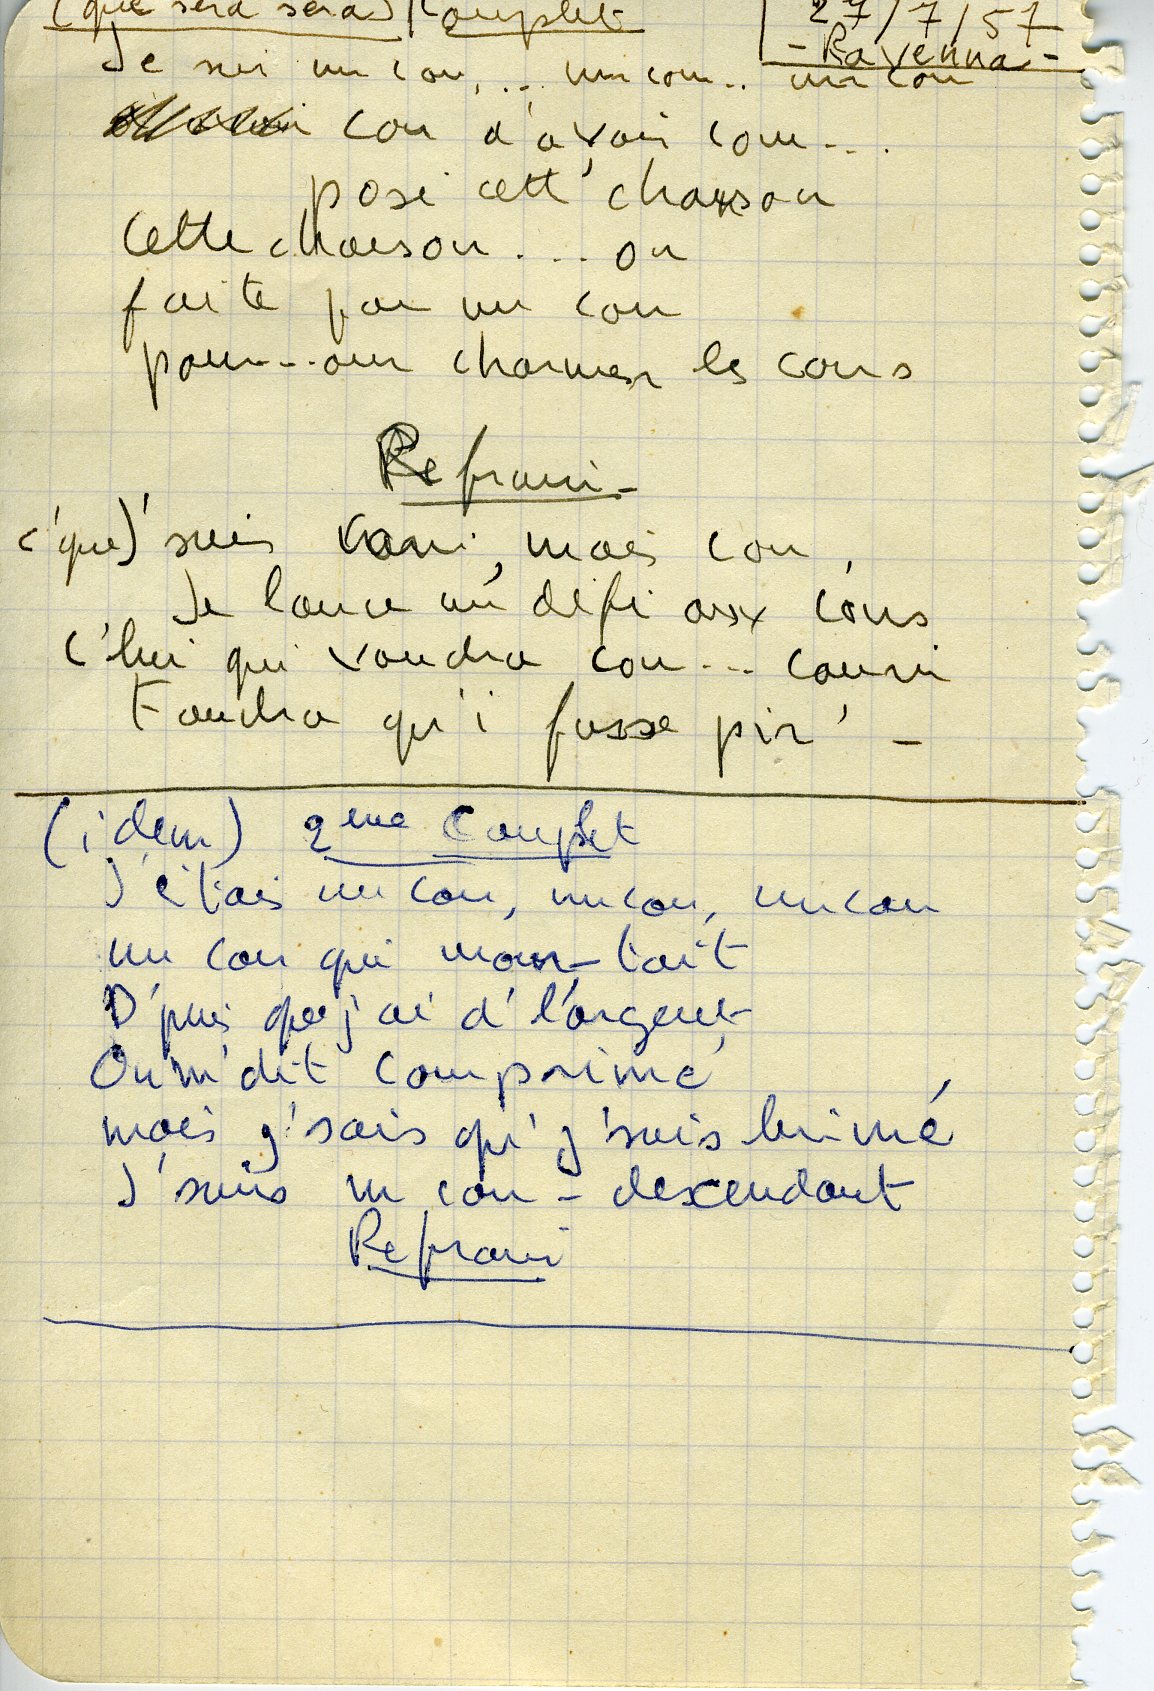 (que sera sera) Couplet 27/7/57
- Ravenna -
Je suis un con, ... un con .. un con
con d'avoir com...
posé cett' chanson
Cette chanson .... on
faite par un con
pour...our charmer les cons
Refrain -
c'que j'suis mais con,
Je lance un défi aux cons
C'lui qui voudra con... courir
Faudra qu'i fasse pir' -
(idem) 2eme Couplet
J'étais un con, un con, un con
un con qui mon-tait
D'puis que j'ai d'l'argent
On m'dit comprimé
mais j'sais qu'j'suis brimé
J'suis un con - descendant
Refrain